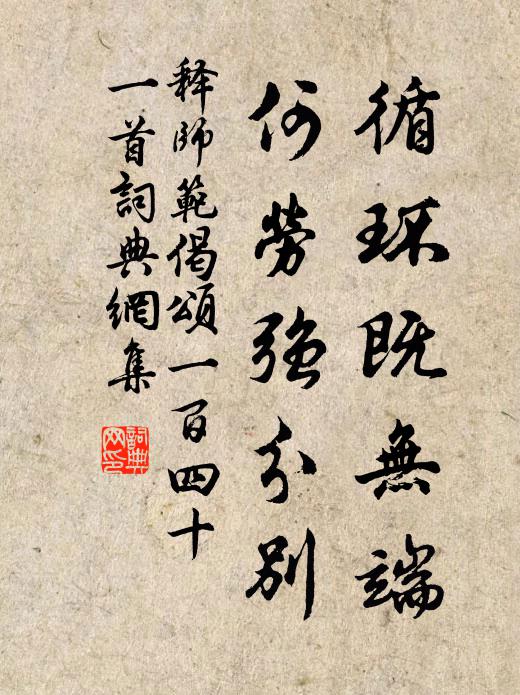 循环既無端
何勞強分别
释師範偈頌一百四十
一首詞典網集
詞典网印